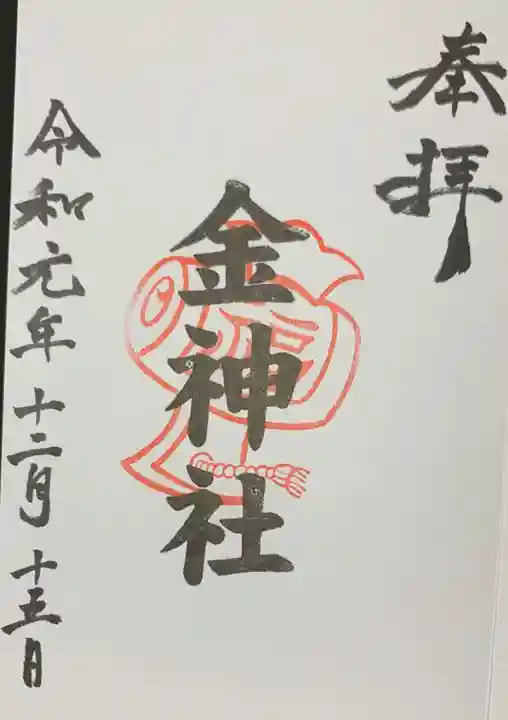 奉拝
金神社
令和元年十二月十五日